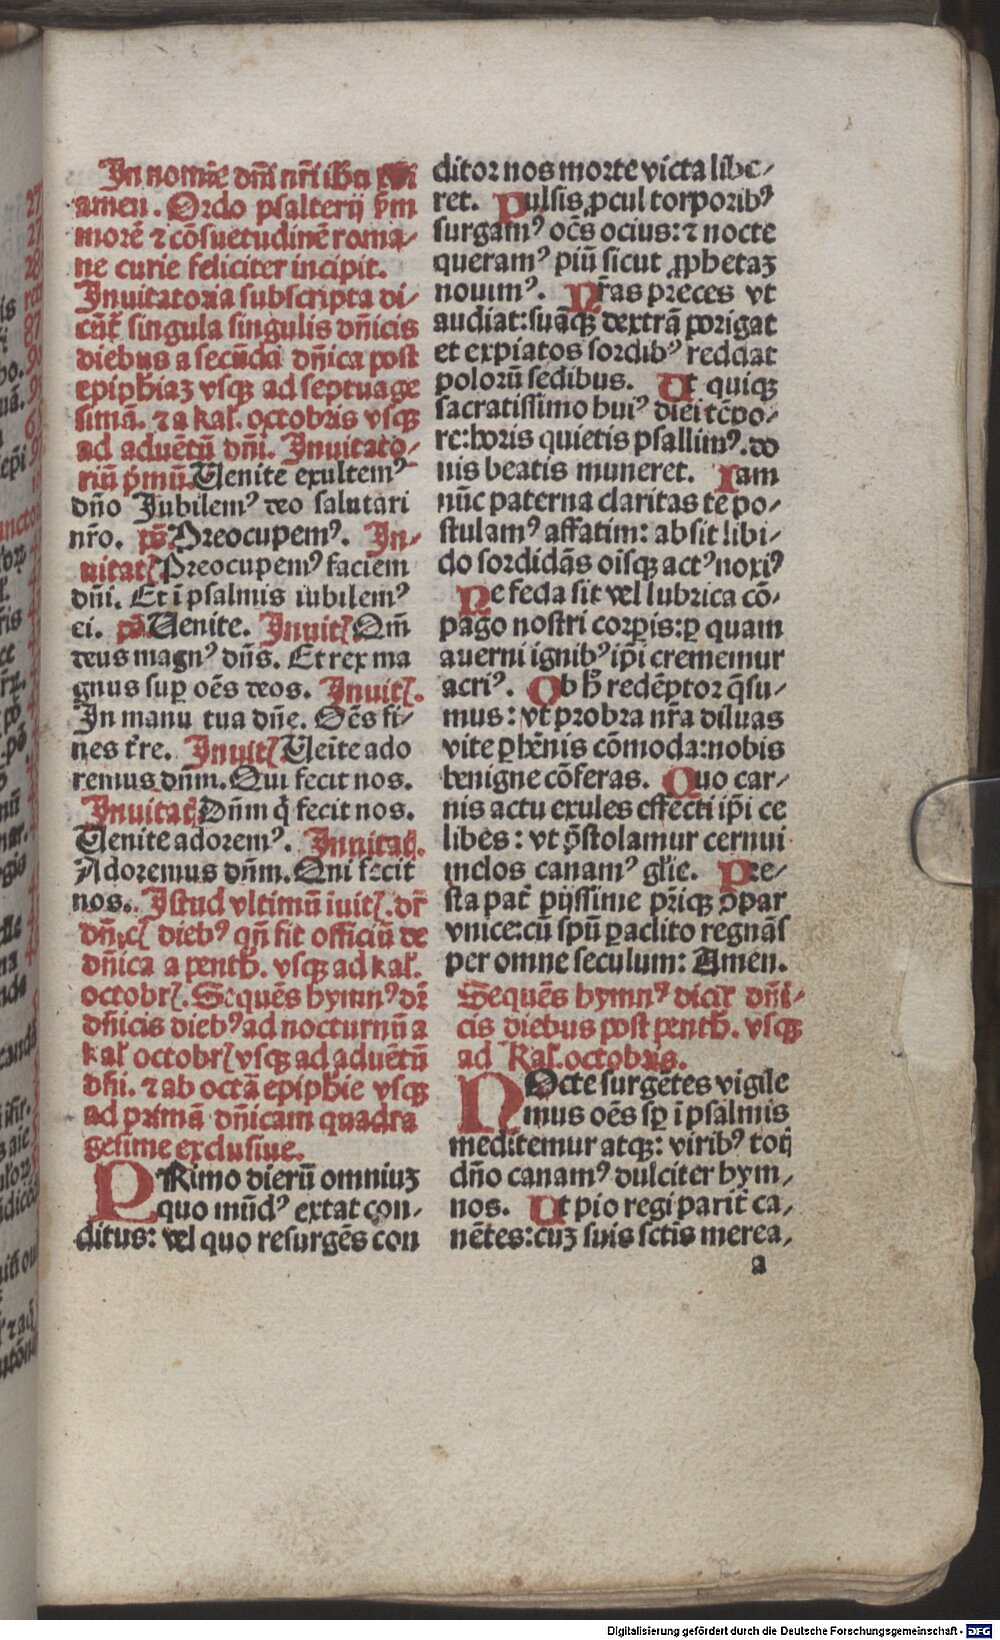 In nomīe dn̄i nr̄i ihū xp̄i
amen. Ordo psalterij ẜm
morē ⁊ cōsuetudinē roma⸗
ne curie feliciter incipit.
Inuitatoria subscripta di⸗
cūt̄ singula singulis dn̄icis
diebus a secūda dn̄ica post
epiphiaꝫ vsqꝫ ad septuage
simā. ⁊ a kal̄. octobris vsqꝫ
ad aduētū dn̄i. Inuitato⸗
riū p̄mū. Uenite exultemꝰ
dn̄o Jubilemꝰ deo salutari
nr̄o. pō. Preocupemꝰ. In⸗
uitat̄. Preocupemꝰ faciem
dn̄i. Et ī psalmis iubilemꝰ
ei. pō. Uenite. Inuit̄. Qm̄
deus magnꝰ dn̄s. Et rex ma
gnus suꝑ oēs deos. Inuit̄.
In manu tua dn̄e. Oēs fi⸗
nes tr̄re. Inuit̄. Ueīte ado
remus dn̄m. Qui fecit nos.
Inuitat̄. Dn̄m q̄ fecit nos.
Uenite adoremꝰ. Inuitat̄.
Adoremus dn̄m. Qui fecit
nos. Istud vltimū īuit̄. dr̄
dn̄icꝭ diebꝰ qn̄ fit officiū de
dn̄ica a penth̄. vsqꝫ ad kal̄.
octobrꝭ. Sequēs hymnꝰ dr̄
dn̄icis diebꝰ ad nocturnū a
kal̄ octobrꝭ vsqꝫ ad aduētū
dn̄i. ⁊ ab octā epiphīe vsqꝫ
ad primā dn̄icam quadra
gesime exclusiue.
PRimo dierū omniuꝫ
quo mūdꝰ extat con⸗
ditus: vel quo resurgēs con
ditor nos morte victa libe⸗
ret. Pulsis ꝓcul torporibꝰ
surgamꝰ oēs ocius: ⁊ nocte
queramꝰ piū sicut ꝓphetaꝫ
nouimꝰ. Nr̄as preces vt
audiat: suāqꝫ dextrā porigat
et expiatos sordibꝰ reddat
polorū sedibus. Ut quiqꝫ
sacratissimo huiꝰ diei tēpo⸗
re: horis quietis psallimꝰ. do
nis beatis muneret. Iam
nūc paterna claritas te po⸗
stulamꝰ affatim: absit libi⸗
do sordidās oīsqꝫ actꝰ noxiꝰ
Ne feda sit vel lubrica cō⸗
pago nostri corꝑis: ꝑ quam
auerni ignibꝰ ip̄i crememur
acriꝰ. Ob h̄ redēptor q̄su⸗
mus: vt probra nr̄a diluas
vite ꝑhēnis cōmoda: nobis
benigne cōferas. Quo car⸗
nis actu exules effecti ip̄i ce
libes: vt p̄stolamur cernui
melos canamꝰ gl̄ie. Pre⸗
sta pat̄ pijssime pr̄iqꝫ ↄpar
vnice: cū spū ꝑaclito regnās
per omne seculum: Amen.
Sequēs hymnꝰ dicit̄ dn̄i⸗
cis diebus post penth̄. vsqꝫ
ad Kal̄. octobris.
NOcte surgētes vigile
mus oēs sꝑ ī psalmis
meditemur atqꝫ: viribꝰ totꝭ
dn̄o canamꝰ dulciter hym⸗
nos. Ut pio regi parit̄ ca⸗
nētes: cuꝫ suis sctīs merea⸗
a
Digitalisierung gefördert durch die Deutsche Forschungsgemeinschaft - DFG